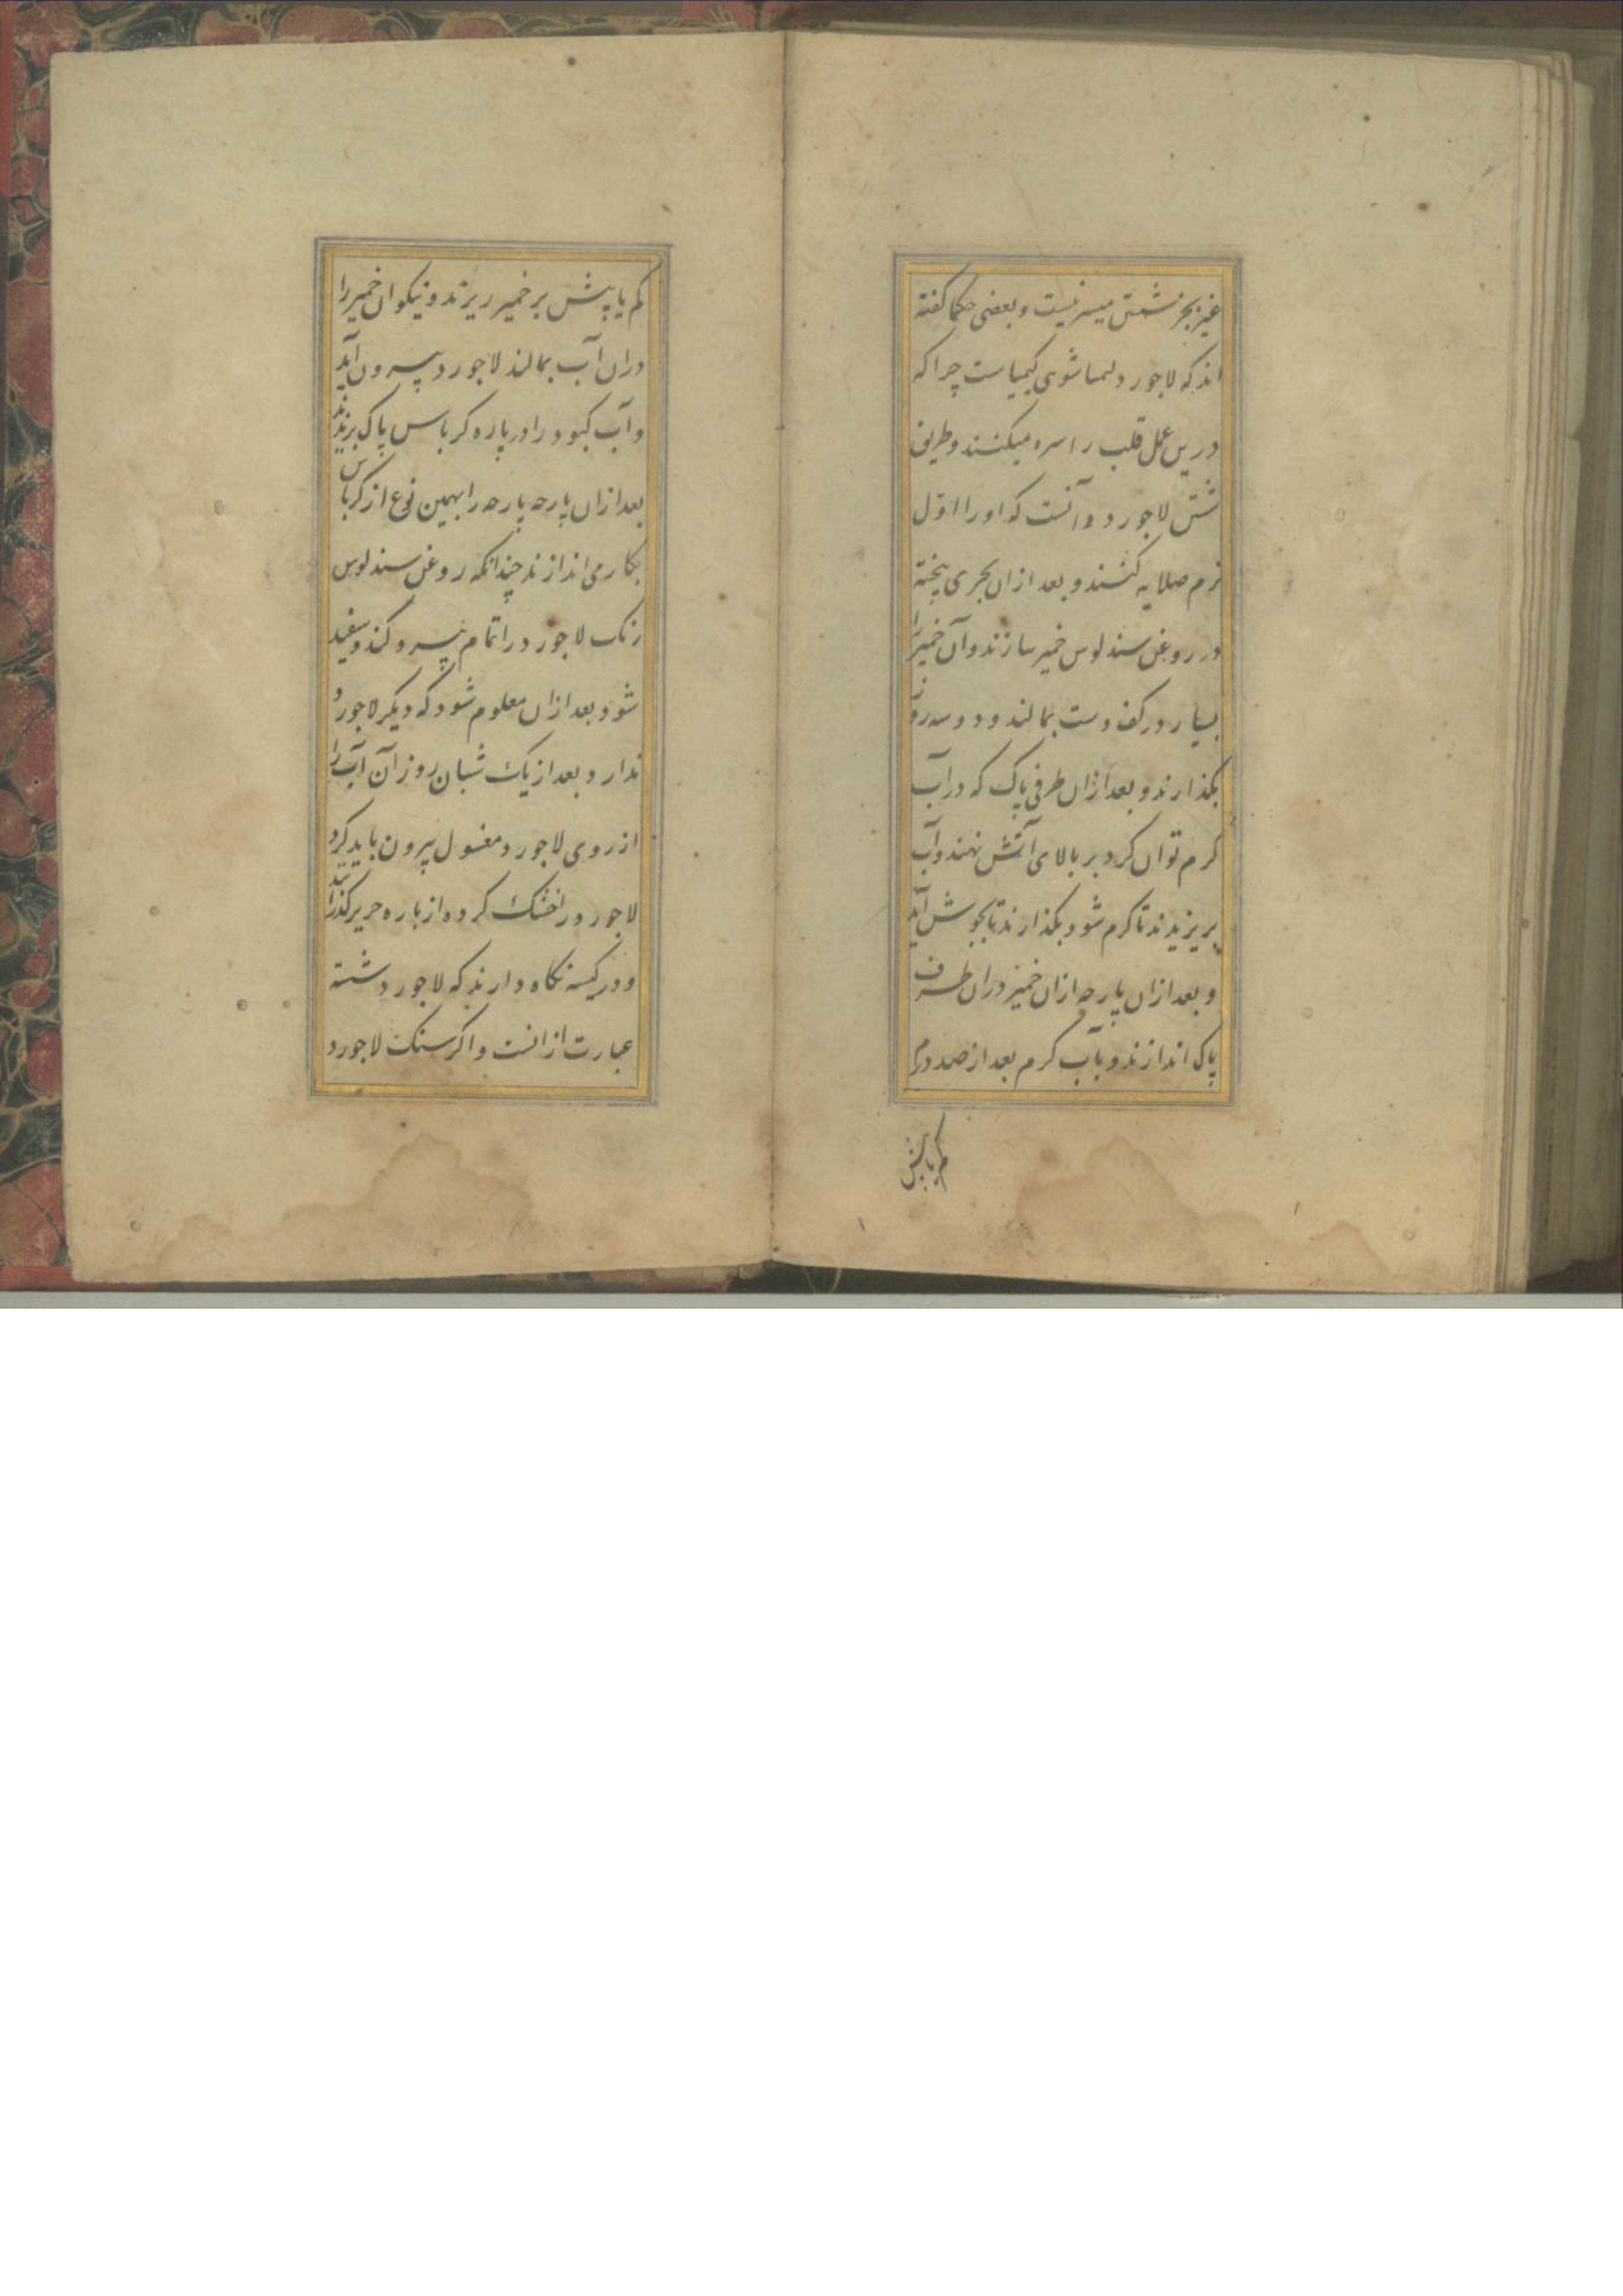 غیر بجز شستن میسر نیست و بعضی حکما گفته
اند که لاجورد شوی کیمیاست چرا که
درین عمل قلب را سره میکنند و طریق
شستن لاجورد و آنست که او را اول
نرم صلایه کنند و بعد ازان بجری پخته
در روغن سندلوس خمیر سازند و آن خمیر را
بسیار در کف دست بمالند و دو سه روز
بکذارند و بعد ازان ظرفی پاک که در آب
کرم توان کرد بر بالای آتش نهند و آب
بریزیدند تا کرم شود و بکذارند تا بجوش آید
و بعد ازان پارچه ازان خمیر دران ظرف
پاک اندازند و بآب کرم بعد از صد درم
کم یا بیش
کم یا بیش بر خمیر ریزند و نیکو ان خمیر را
دران آب بمالند لاجورد بیرون آید
و آب کبود را در پاره کرباس پاک ریزند
بعد ازان پارچه پارچه را بهمین نوع از کرباس
بکار می اندازند چندانکه روغن سندلوس
رنک لاجورد را تمام بیرو کند و سفید
شود بعد ازان معلوم شود که دیکر لاجورد
ندارد و بعد از یک شبان روز آن آب را
از روی لاجورد مغسول بیرون باید کرد
لاجورد را خشک کرده از پاره حریر کذرانند
و در کیسه نکاه دارند که لاجورد شسته
عبارت از انست و اکر سنک لاجورد